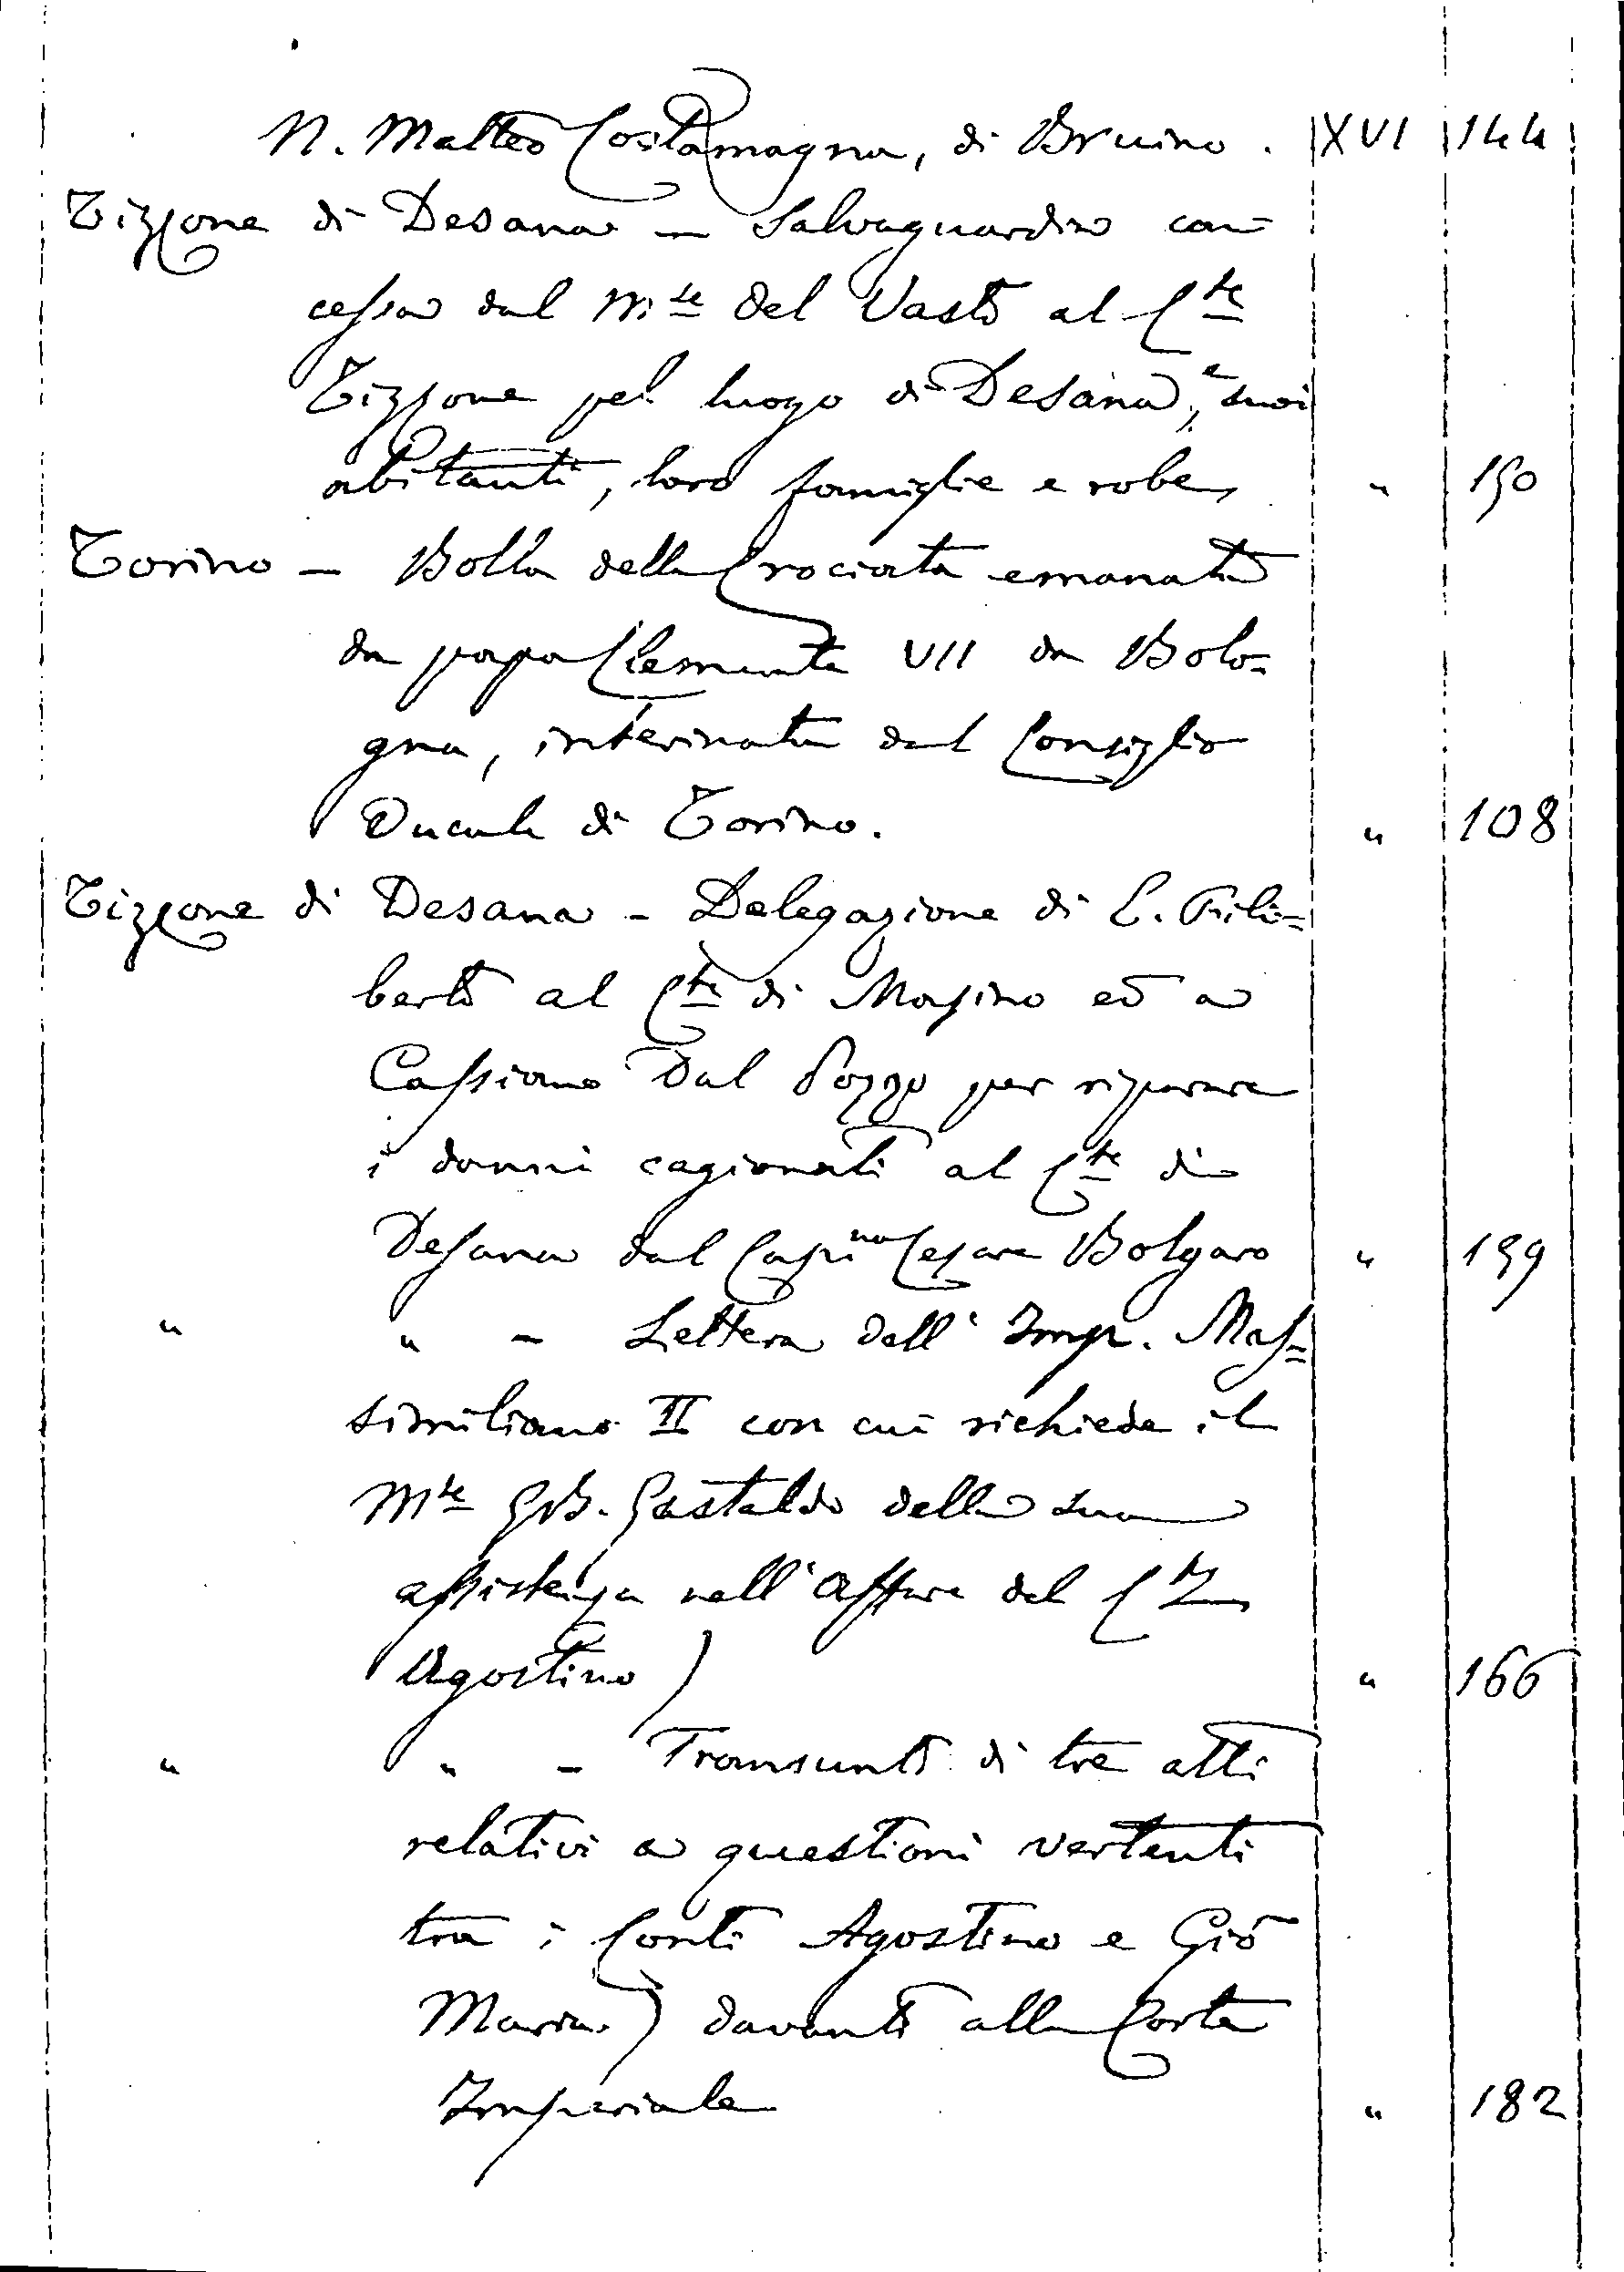 N. Matteo Costamagna, di Bruino. XVI 144
Tizzone di Desana — Salvaguardia con
cessa dal M.se del Vasto al C.te
Tizzone pel luogo di Desana, e suoi
abitanti, loro famiglie e robe, " 150
Torino — Bolla della Crociata emanata
da papa Clemente VII da Bolo=
gna, interinata dal Consiglio
Ducale di Torino. " 108
Tizzone di Desana — Delegazione di E. Fili=
berto al C.te di Masino ed a
Cassiano Dal Pozzo per riparare
i danni cagionati al C.te di
Desana dal Capi.no Cesare Bolgaro " 159
" " — Lettera dell' Imp. Mas=
similiano II con cui richiede il
M.se GB. Gastaldo della sua
assistenza nell'affare del C.te
Agostino) " 166
" " — Transunto di tre atti
relativi a questioni vertenti
tra i Conti Agostino e Gio
Maria) davanti alla Corte
Imperiale " 182